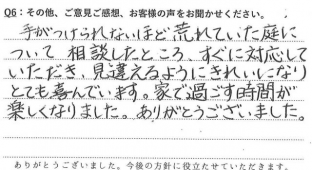 Q6：その他、ご意見ご感想、お客様の声をお聞かせください。
手がつけられないほど荒れていた庭に
ついて 相談したところ、すぐに対応して
いただき、見違えるようにきれいになり
とても喜んでいます。家で過ごす時間が
楽しくなりました。ありがとうございました。
ありがとうございました。今後の方針に役立たせていただきます。